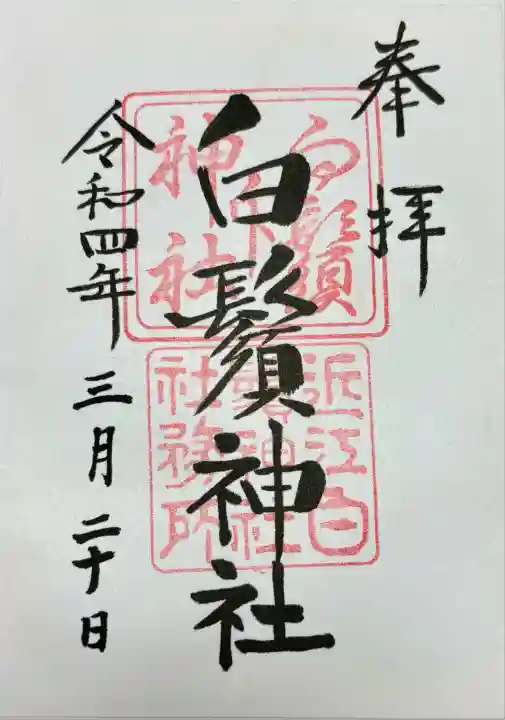 奉拝
白鬚神社
令和四年三月二十日
白鬚
神社
近江白
鬚神社
社務所